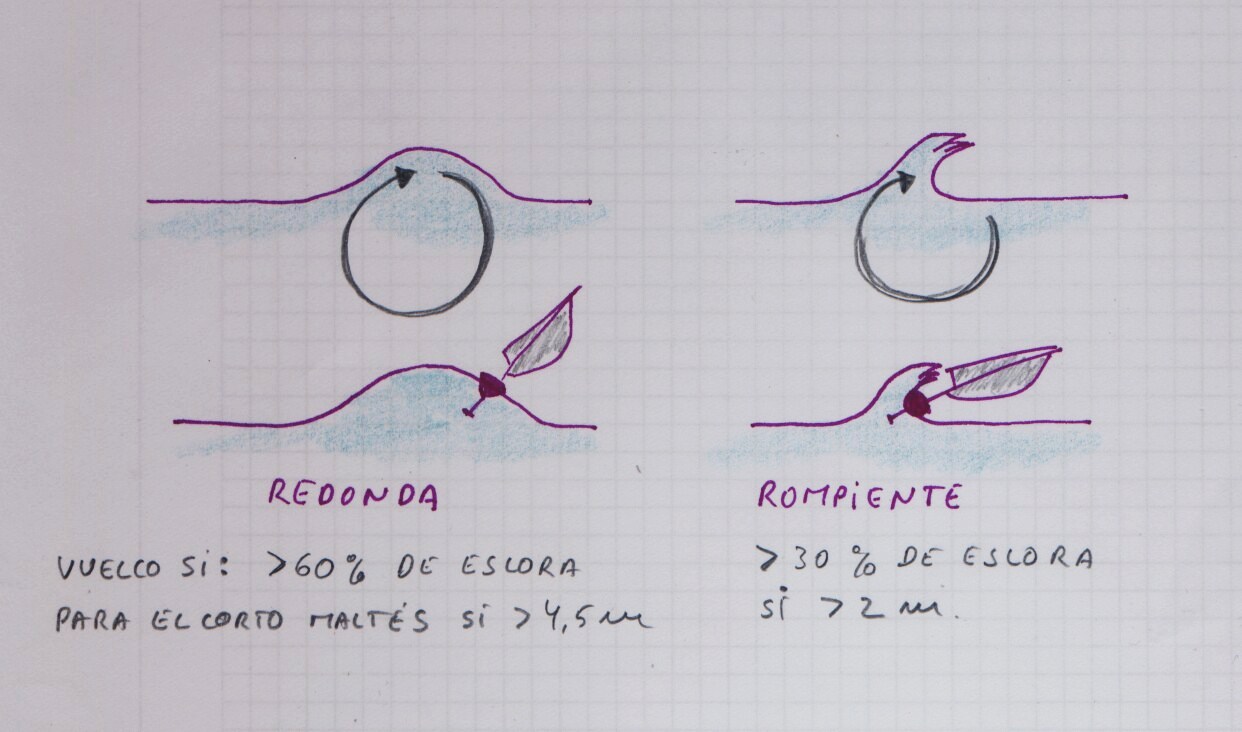 REDONDA
ROMPIENTE
VUELCO Si: >60% DE ESLORA
>30 % DE ESLORA
PARA EL CORTO MALTÉS Si >4,5 m
Si >2 m.